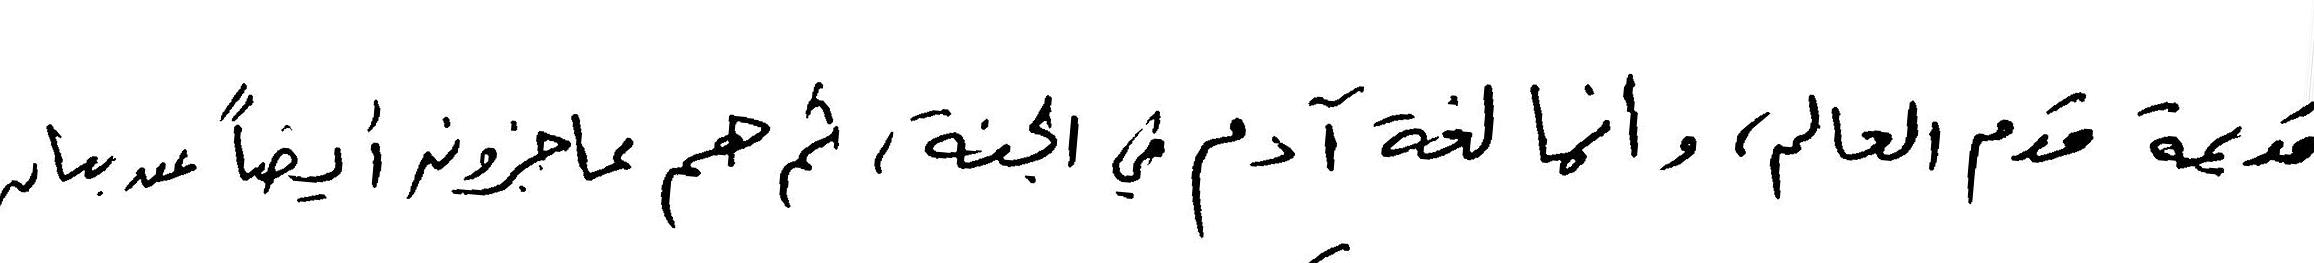 قديمة قدم العالم، و أنها لغة آدم في الجنة، ثم هم عاجزون أيضاً عن بيان